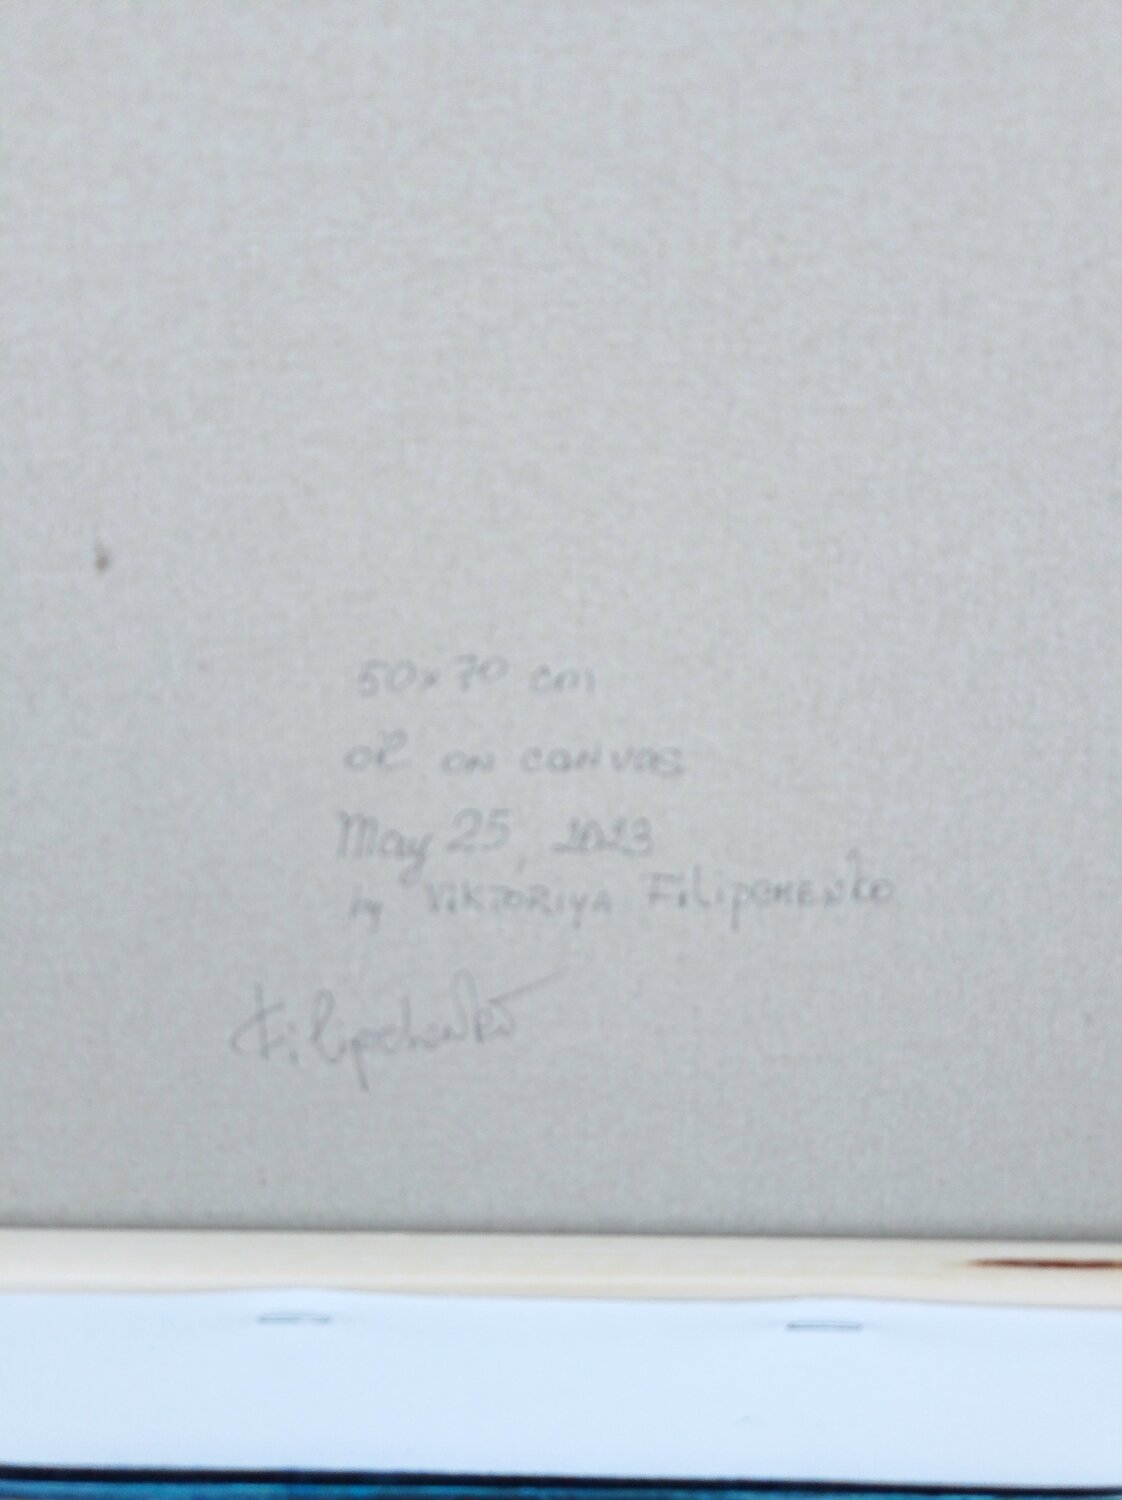 50x70 cm
oil on canvas
May 25, 2023
by ViKTORiYA FiLipCHENKO
Filipchenko